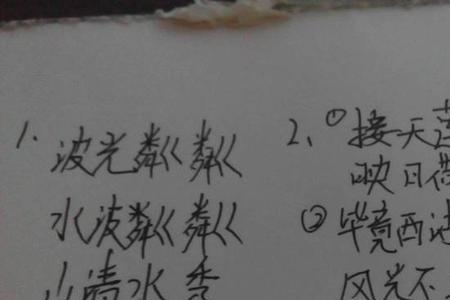 1. 波光粼粼
水波粼粼
山清水秀
2、①接天莲
映日荷
②毕竟西
风光不